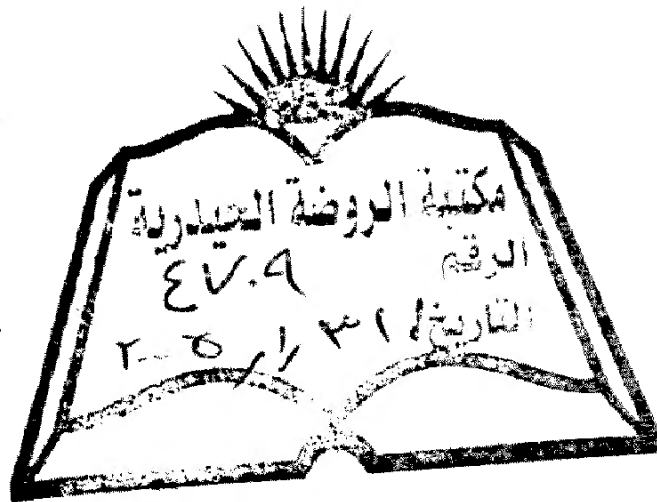 مكتبة الروضة الحيدرية
الرقم ٤٧٠٩
التاريخ ٣١/١/٢٠٠٥